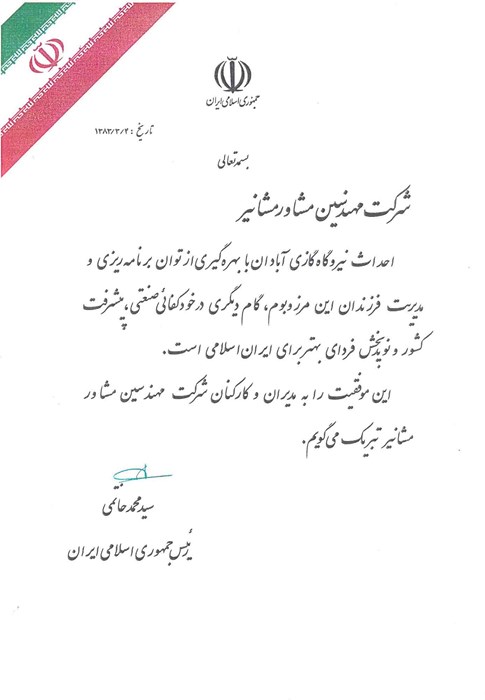 جمهوری اسلامی ایران
تاریخ : ۱۳۸۳/۳/۲
بسمه تعالی
شرکت مهندسین مشاور مشانیر
احداث نیروگاه گازی آبادان با بهره گیری از توان برنامه ریزی و
مدیریت فرزندان این مرز و بوم، گام دیگری در خودکفائی صنعتی، پیشرفت
کشور و نویدبخش فردای بهتر برای ایران اسلامی است.
این موفقیت را به مدیران و کارکنان شرکت مهندسین مشاور
مشانیر تبریک می گویم.
سید محمد خاتمی
رئیس جمهوری اسلامی ایران